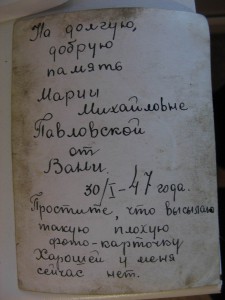 На долгую,
добрую
память
Марии
Михайловне
Павловской
от
Вани.
30/I-47 года.
Простите, что высылаю
такую плохую
фото-карточку
Харошей у меня
сейчас нет.